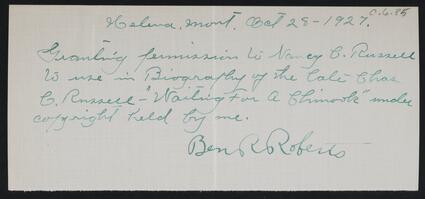 C.6.85
Helena, Mont, Oct 28-1927.
Granting permission to Nancy C. Russell
to use in Biography of the late Chas
C. Russell - "Waiting For A Chinook" under
copyright held by me.
Ben R Roberts